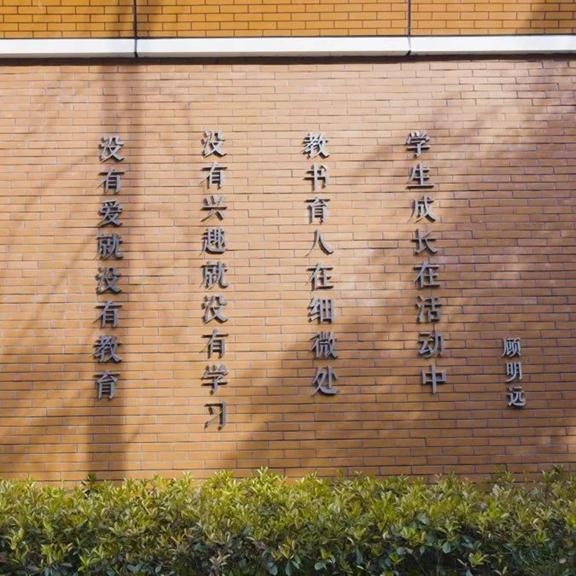 没有爱就没有教育
没有兴趣就没有学习
教书育人在细微处
学生成长在活动中
顾明远